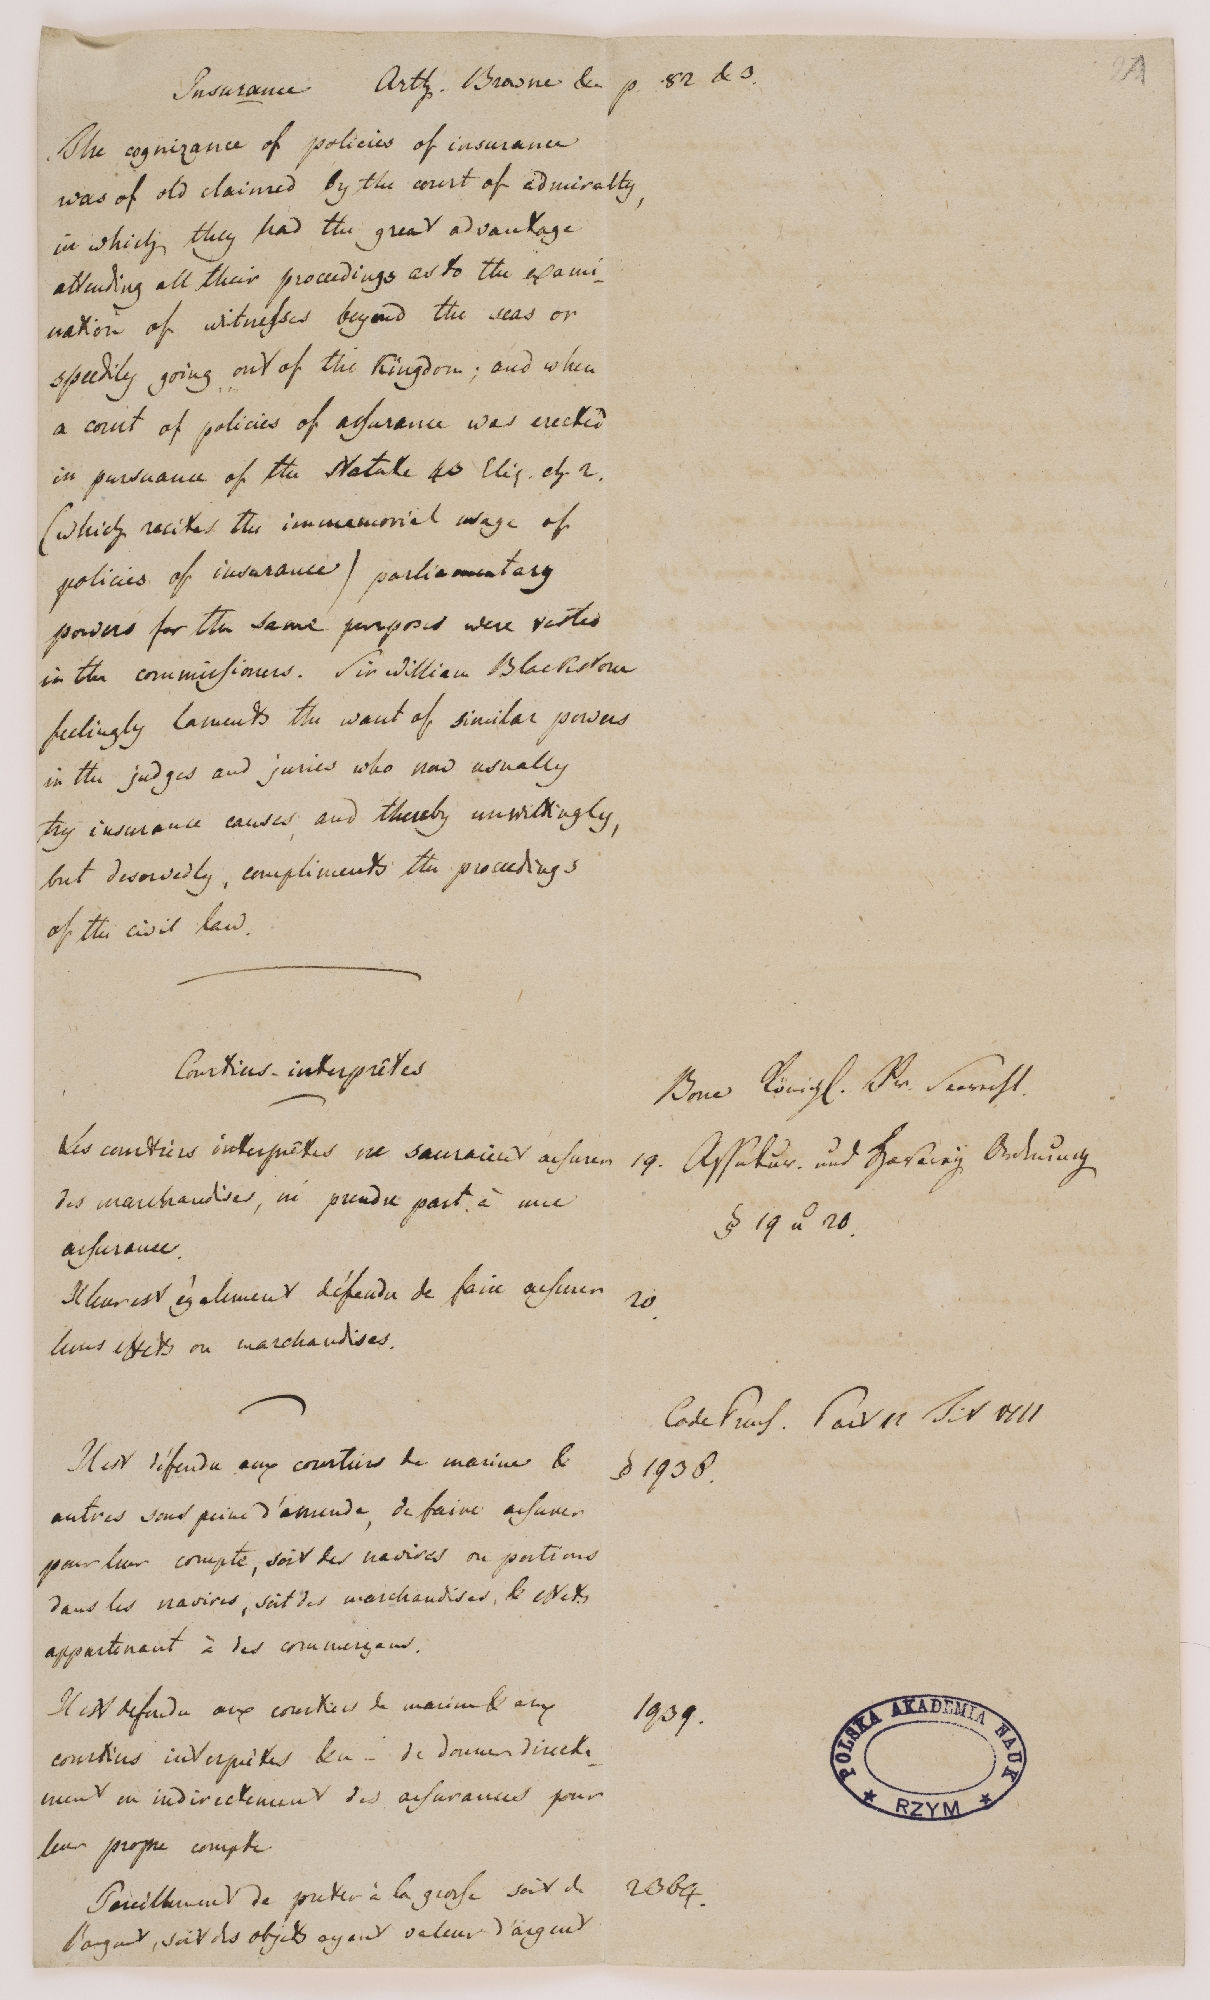 Insurance Arth. Browne &c p. 82 & 3.
The cognizance of policies of insurance
was of old claimed by the court of admiralty,
in which they had the great advantage
attending all their proceedings as to the exami-
nation of witnesses beyond the seas or
speedily going out of the Kingdom; and when
a court of policies of assurance was erected
in pursuance of the Statute 43 Eliz. ch 2.
(which recites the immemorial usage of
policies of insurance) parliamentary
powers for the same purposes were vested
in the commissioners. Sir William Blackstone
feelingly laments the want of similar powers
in the judges and juries who now usually
try insurance causes, and thereby unwittingly,
but deservedly, compliments the proceedings
of the civil law.
Courtiers-interprêtes
Königl. Pr. Seerecht.
Les courtiers interprêtes ne sauraient assurer 19. Assekur. und Haverey Ordnung
des marchandises, ni prendre part à une
§ 19 u 20.
assurance.
Il leur est également défendu de faire assurer 20.
leurs effets ou marchandises.
Code Pruss. Part II Tit VIII
Il est défendu aux courtiers de marine & § 1938.
autres sous peine d'amende, de faire assurer
pour leur compte, soit des navires ou portions
dans les navires, soit des marchandises, & effets
appartenant à des commerçans.
Il est defendu aux courtiers de marine & aux 1939.
courtiers interprêtes &c - de donner directe-
ment ou indirectement des assurances pour
leur propre compte
Pareillement de preter à la grosse soit de 2364.
l'argent, soit des objets ayant valeur d'argent
POLSKA AKADEMIA NAUK
RZYM